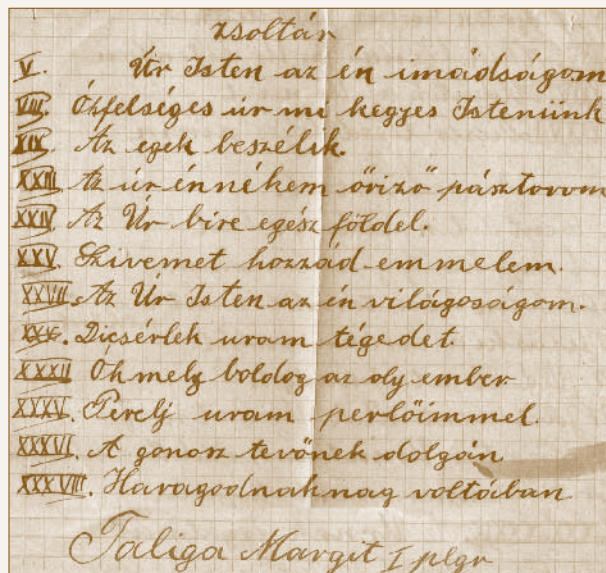 zsoltár
V. Úr Isten az én imádságom
VIII. Ó felséges úr mi kegyes Istenünk
XIX. Az egek beszélik.
XXIII. Az úr énnékem őriző pásztorom
XXIV. Az Úr bire egész földel.
XXV. Szivemet hozzád emmelem.
XXVII. Az Úr Isten az én világoságom.
XXX. Dicsérlek uram tégedet.
XXXII Óh mely boldog az oly ember
XXXV. Perelj uram perlőimmel.
XXXVI. A gonosz tevőnek dolgán
XXXVIII. Haragodnak nag voltában
Taliga Margit I plgr